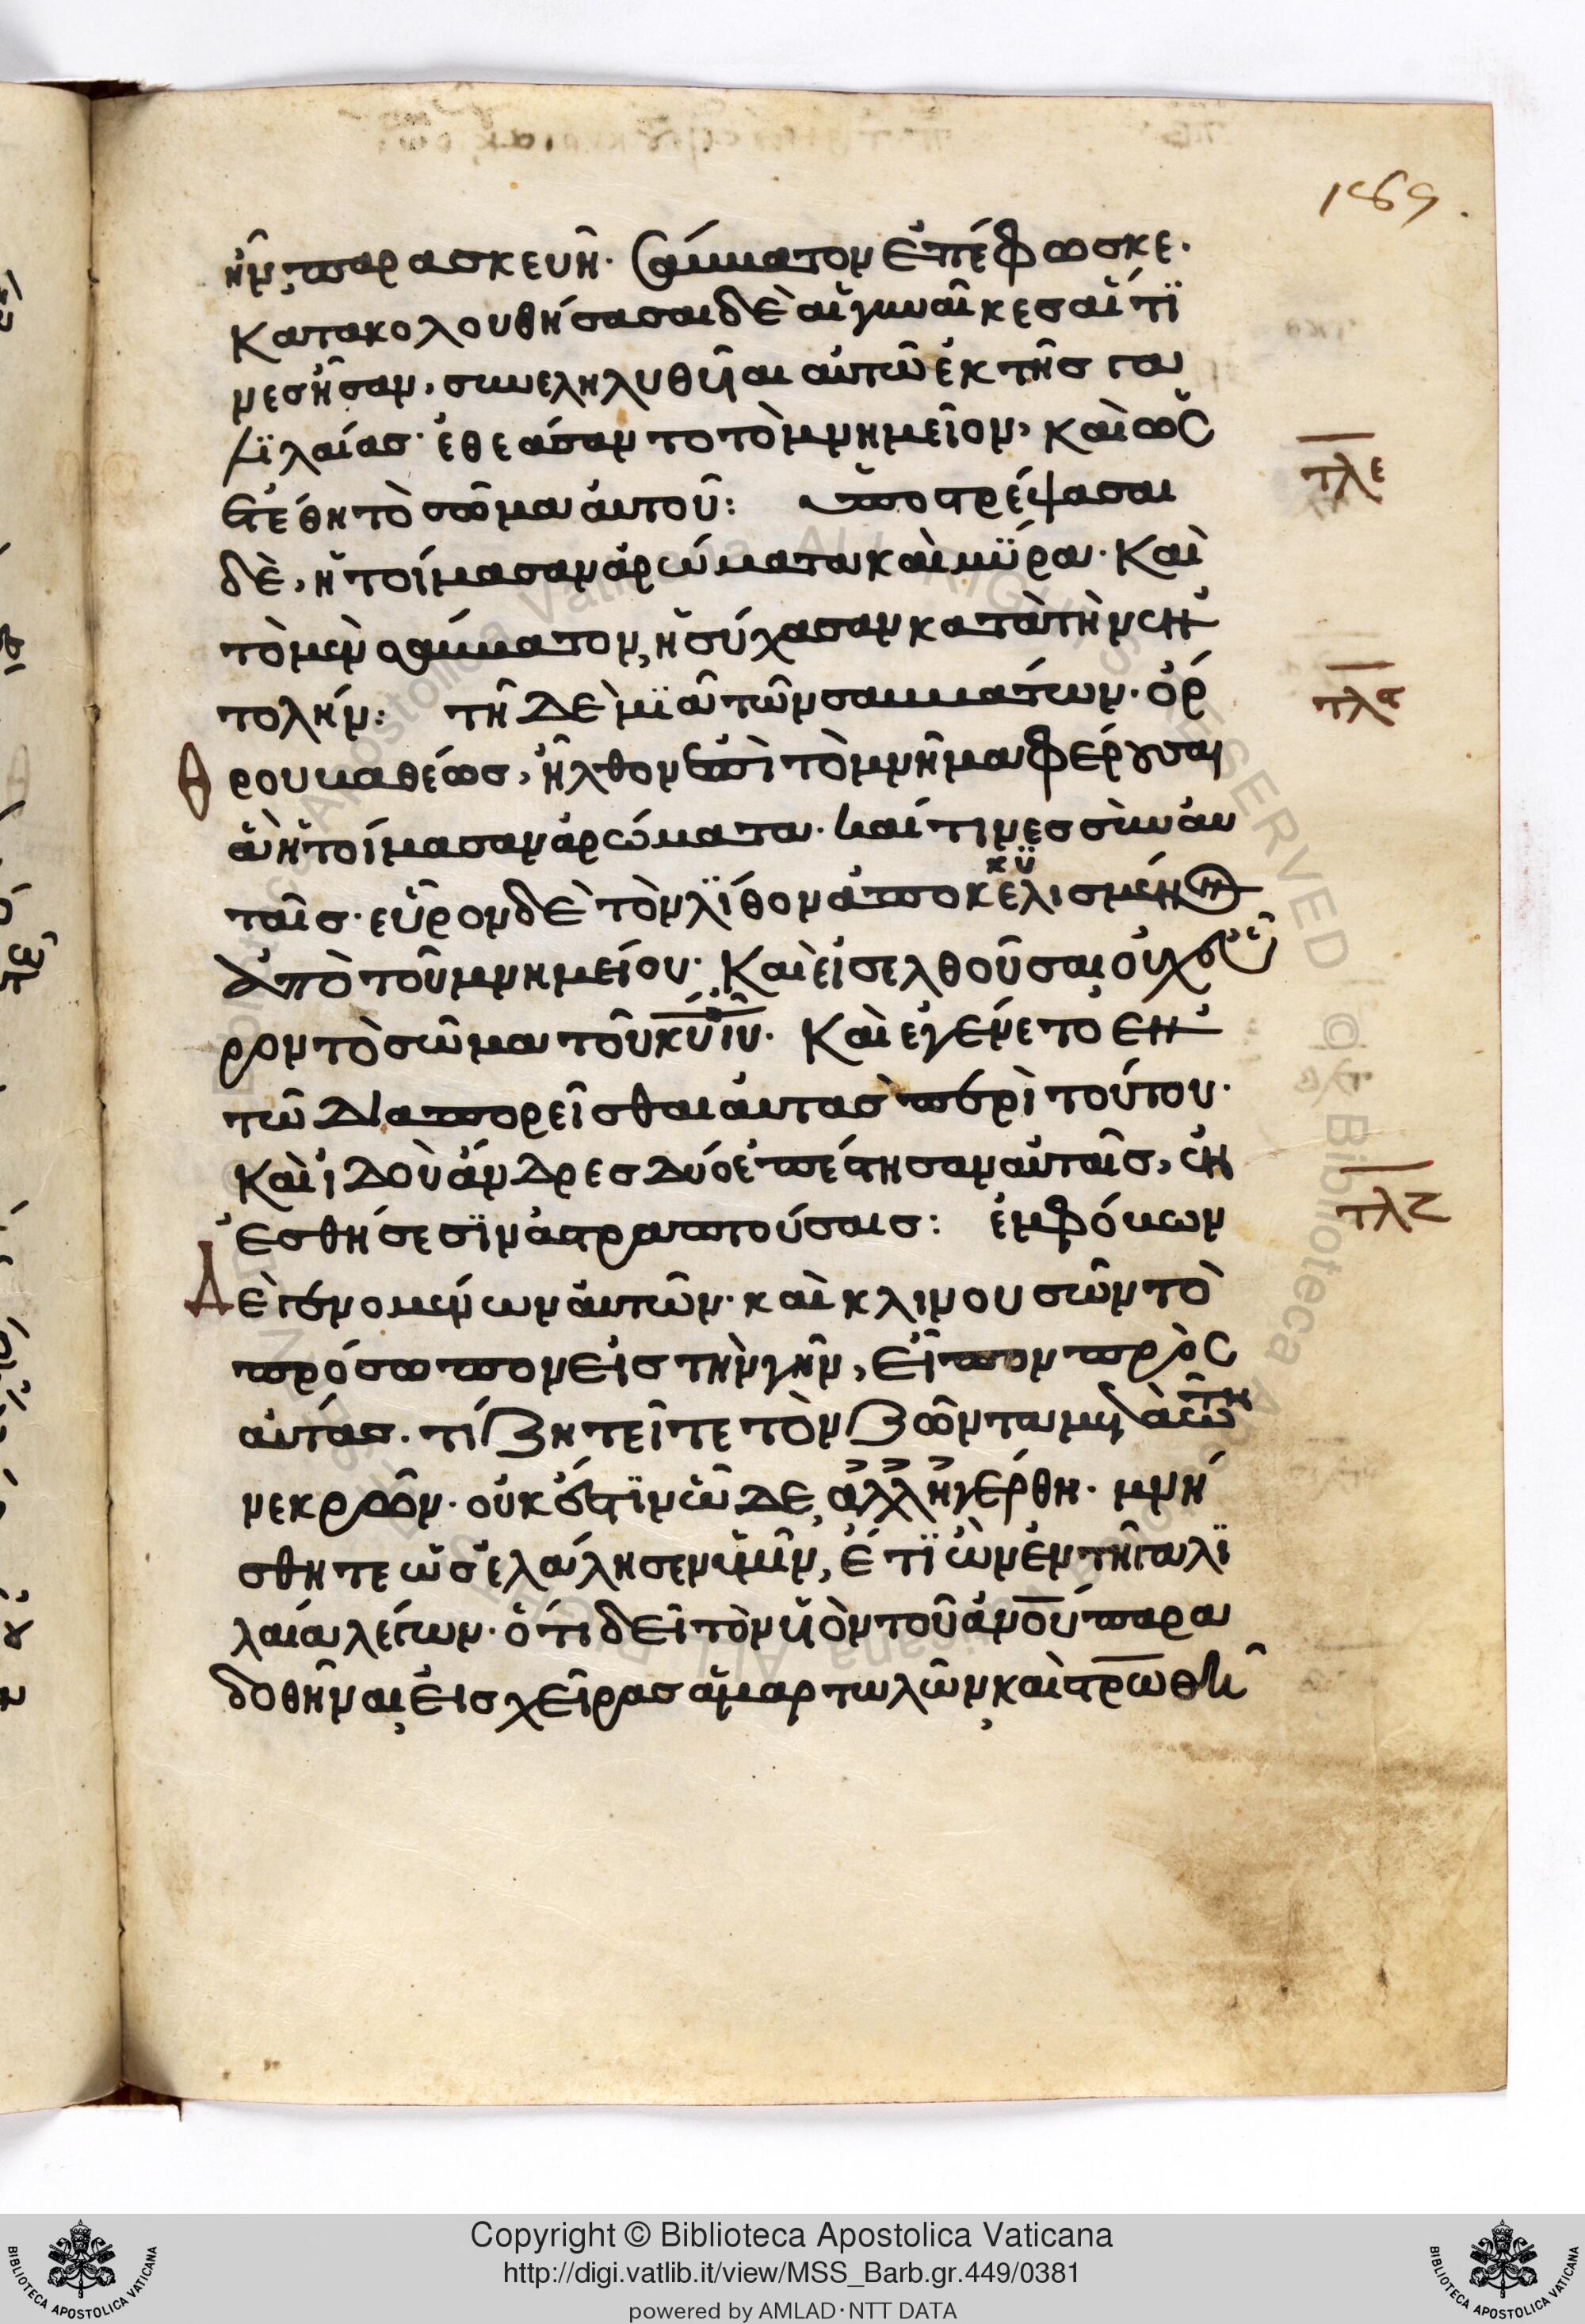 189.
ἦν, παρασκευῆ. Σάββατον ἐπέφωσκε.
Κατακολουθήσασαι δὲ αἱ γυναῖκες αἵτϊ
νες ἦσαν, συνεληλυθῆαι αὐτῶ ἐκ τῆς γα
λϊλαίας· ἐθεάσαντο τὸ μνημεῖον, καὶ ὡς
τλε
ἐτέθη τὸ σῶμα αὐτοῦ: ὑποστρέψασαι
δὲ, ἡτοίμασαν ἀρώματα καὶ μύρα. Καὶ
τὸ μὲν σάββατον, ἡσύχασαν κατὰ τὴν ἐν
τολήν: τῆ δὲ μϊᾶ τῶν σαββάτων. ὄρ
τλς
θρου βαθέως, ἦλθον ἐπὶ τὸ μνῆμα φέρουσαι
ἃ ἡτοίμασαν ἀρώματα. καί τινες σὺν αὐ
ταῖς. εὗρον δὲ τὸν λΐθον ἀποκελισμένον
κϋ
ἀπὸ τοῦ μνημείου. Καὶ εἰσελθοῦσαι οὐχ εὗ
ρον τὸ σῶμα τοῦ κῦ ἰῦ. Καὶ ἐγένετο ἐν
τῶ διαπορεῖσθαι αὐτὰς περὶ τούτου.
Καὶ ἰδοὺ ἄνδρες δύο ἐπέστησαν αὐταῖς, ἐν
ἐσθήσεσϊν ἀστραπτούσαις: ἐμφόβων
τλζ
Δὲ γενομένων αὐτῶν. καὶ κλινουσῶν τὸ
πρόσωπον εἰς τὴν γῆν, εἶπον πρὸς
αὐτάς. τί ζητεῖτε τὸν ζῶντα μετὰ τῶν
νεκρῶν. οὐκ ἔστϊν ὧδε, ἀλλ' ἠγέρθη. μνή
σθητε ὡς ἐλάλησεν ὑμῖν, ἔτϊ ὢν ἐν τῆ γαλϊ
λαία λέγων. ὅτι δεῖ τὸν υἱὸν τοῦ ἀνοῦ παρα
δοθῆναι εἰς χεῖρας ἁμαρτωλῶν, καὶ στρωθῆ
Copyright © Biblioteca Apostolica Vaticana
http://digi.vatlib.it/view/MSS_Barb.gr.449/0381
powered by AMLAD·NTT DATA
BIBLIOTECA APOSTOLICA VATICANA
BIBLIOTECA APOSTOLICA VATICANA